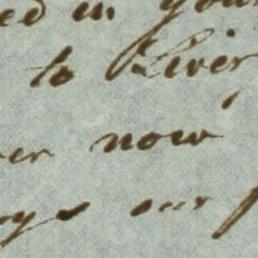 ed in your
to Liver
er now
ys our